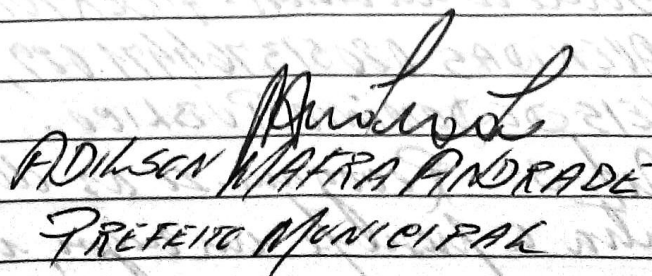 Andrade
ADILSON MAFRA ANDRADE
PREFEITO MUNICIPAL